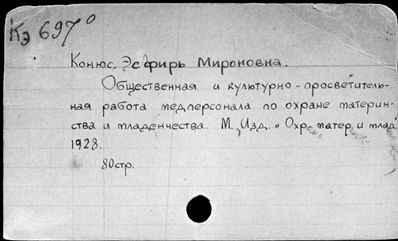 Кэ 697⁰
Конюс, Эсфирь Мироновна.
Общественная и культурно-просветитель-
ная работа медперсонала по охране материн-
ства и младенчества. М., Изд. „Охр. матер. и млад."
1928.
80стр.